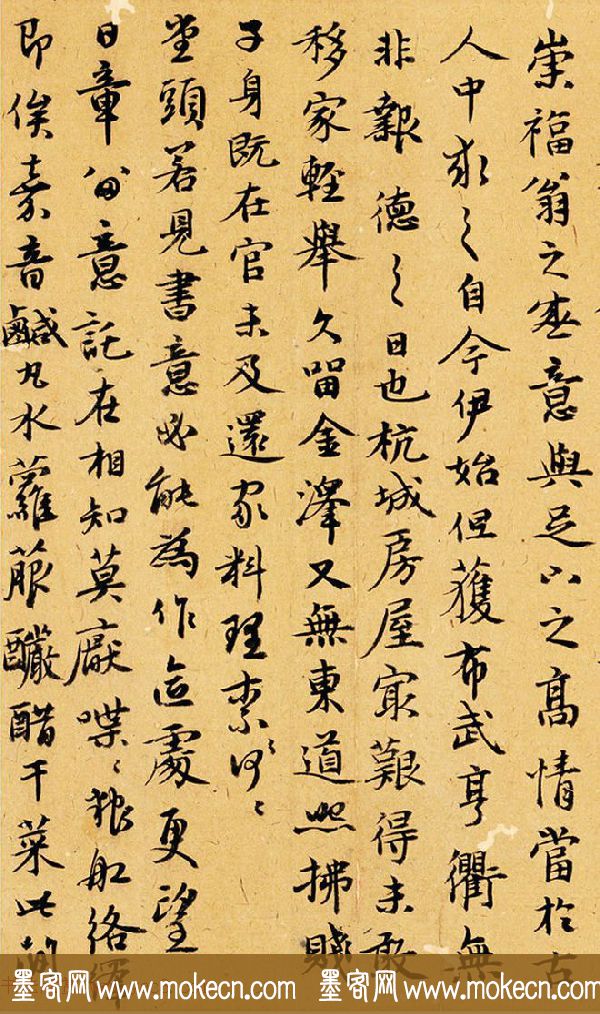 崇福翁之盛意與足下之高情當於古
人中求之自今伊始但獲布武亨衢無
非報德之日也杭城房屋寂艱得未敢
移家輕舉久留金澤又無東道照拂賤
子身既在官未及還家料理柰何〻
坐頭若見書意必能為作區處更望
日章曲意託在相知莫厭喋〻粮缸絡繹
即俟嘉音鹹丸水蘿菔釅醋干菜此間
墨客网 www.mokecn.com 墨客网 www.mokecn.com